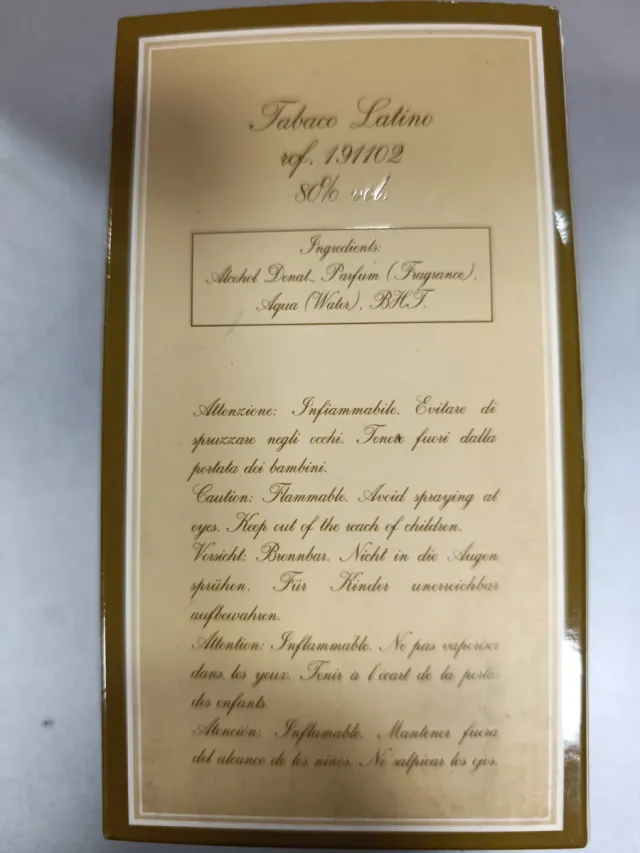 Tabaco Latino
ref. 191102
80% vol.
Ingredients:
Alcohol Denat., Parfum (Fragrance),
Aqua (Water), BHT.
Attenzione: Infiammabile. Evitare di
spruzzare negli occhi. Tenere fuori dalla
portata dei bambini.
Caution: Flammable. Avoid spraying at
eyes. Keep out of the reach of children.
Vorsicht: Brennbar. Nicht in die Augen
sprühen. Für Kinder unerreichbar
aufbewahren.
Attention: Inflammable. Ne pas vaporiser
dans les yeux. Tenir à l'écart de la porte
des enfants.
Atención: Inflamable. Mantener fuera
del alcance de los niños. No salpicar los ojos.